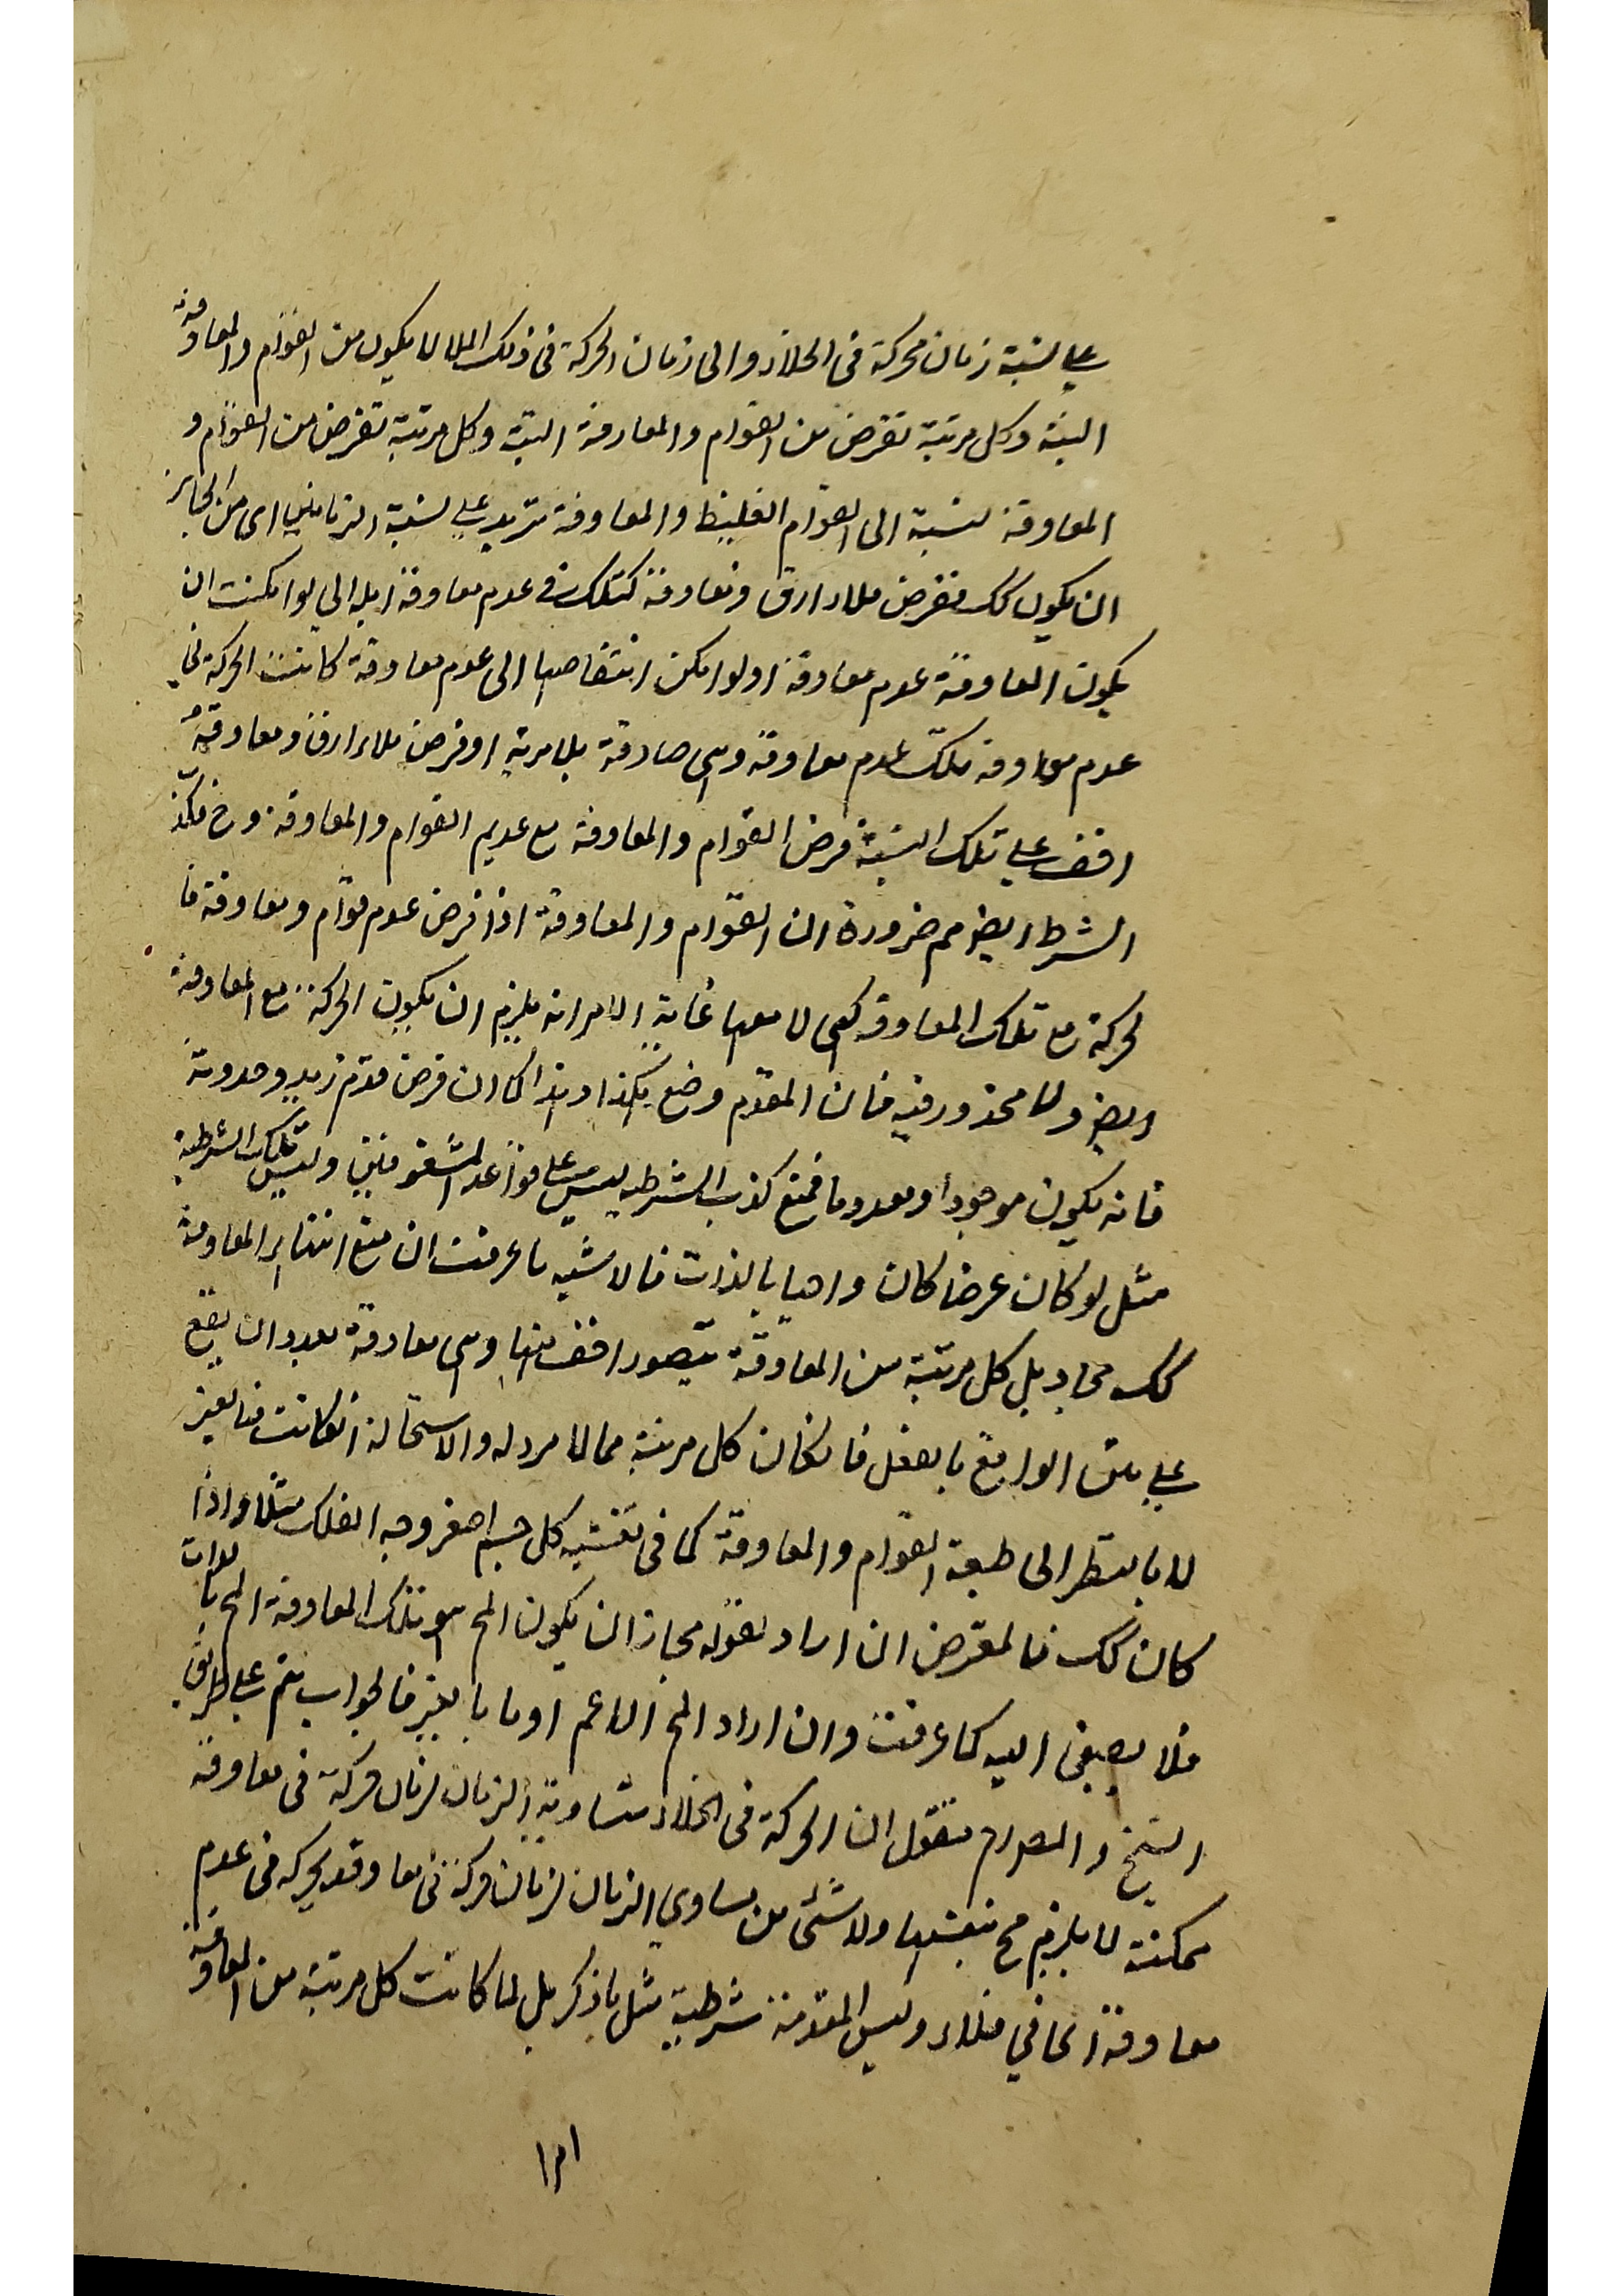 على نسبة زمان محركة فى الخلاء والى زمان الحركة فى ذلك الملا لا يكون من القوام والمعاوقة
البتة وكل مرتبة تفرض من القوام والمعاوقة البتة وكل مرتبة تفرض من القوام و
المعاوقة نسبة الى القوام الغليظ والمعاوقة تزيد على نسبة الزمانين اى من الجايز
ان يكون كك فنفرض ملاء ارق ومعاوقة كتلك فى عدم معاوقة لو امكنت ان
يكون المعاوقة عدم معاوقة او لو امكن انتقاصها الى عدم معاوقة كانت الحركة فى
عدم معاوقة تلك عدم معاوقة وهى صادقة بلا مرية او فرض ملاء ارق ومعاوقة
اخف على تلك النسبة فرض القوام والمعاوقة مع عديم القوام والمعاوقة وح فكذ
الشرط ايض مم ضرورة ان القوام والمعاوقة اذا فرض عدم قوام ومعاوقة فا
لحركة مع تلك المعاوقة كهى لا معها غاية الامر انه يلزم ان يكون الحركة مع المعاوقة
ايض ولا محذور فيه فان المقدم وضع هكذا وهذا كما ان فرض قدم زيد وحدوثه
فانه يكون موجودا ومعدوما فمنع كذب الشرطيه ليس على قواعد وليس تلك الشرطية
مثل لو كان عرضا كان واهيا بالذات فالاشبه ما عرفت ان منع انتهاء المعاوقة
كك مجاد بل كل مرتبة من المعاوقة يتصور اخف منها وهى معاوقة بعد ان يقع
على متن الواقع بالفعل فانكان كل مرتبة مما لا مرد له والاستحالة انكانت فبالغير
لا بالنظر الى طبيعة القوام والمعاوقة كما فى كل جسم اصغر وجه الفلك مثلا واذا
كان كك فالمعترض ان اراد بقوله مجاز ان يكون المح هو تلك المعاوقة المح بالذات
فلا يصغى اليه كما عرفت وان اراد المح الاعم او ما بالغير فالجواب يتم على طريق
الشيخ و فنقول ان الحركة فى الخلاء متساوية الزمان لزمان حركة فى معاوقة
ممكنة لا يلزم مح بنفسها ولا شئ من يساوى الزمان لزمان حركة فى معاوقة بحركه فى عدم
معاوقة فى خلاء وليس المقدمة شرطية مثل ما ذكر بل لما كانت كل مرتبة من المعاوقة